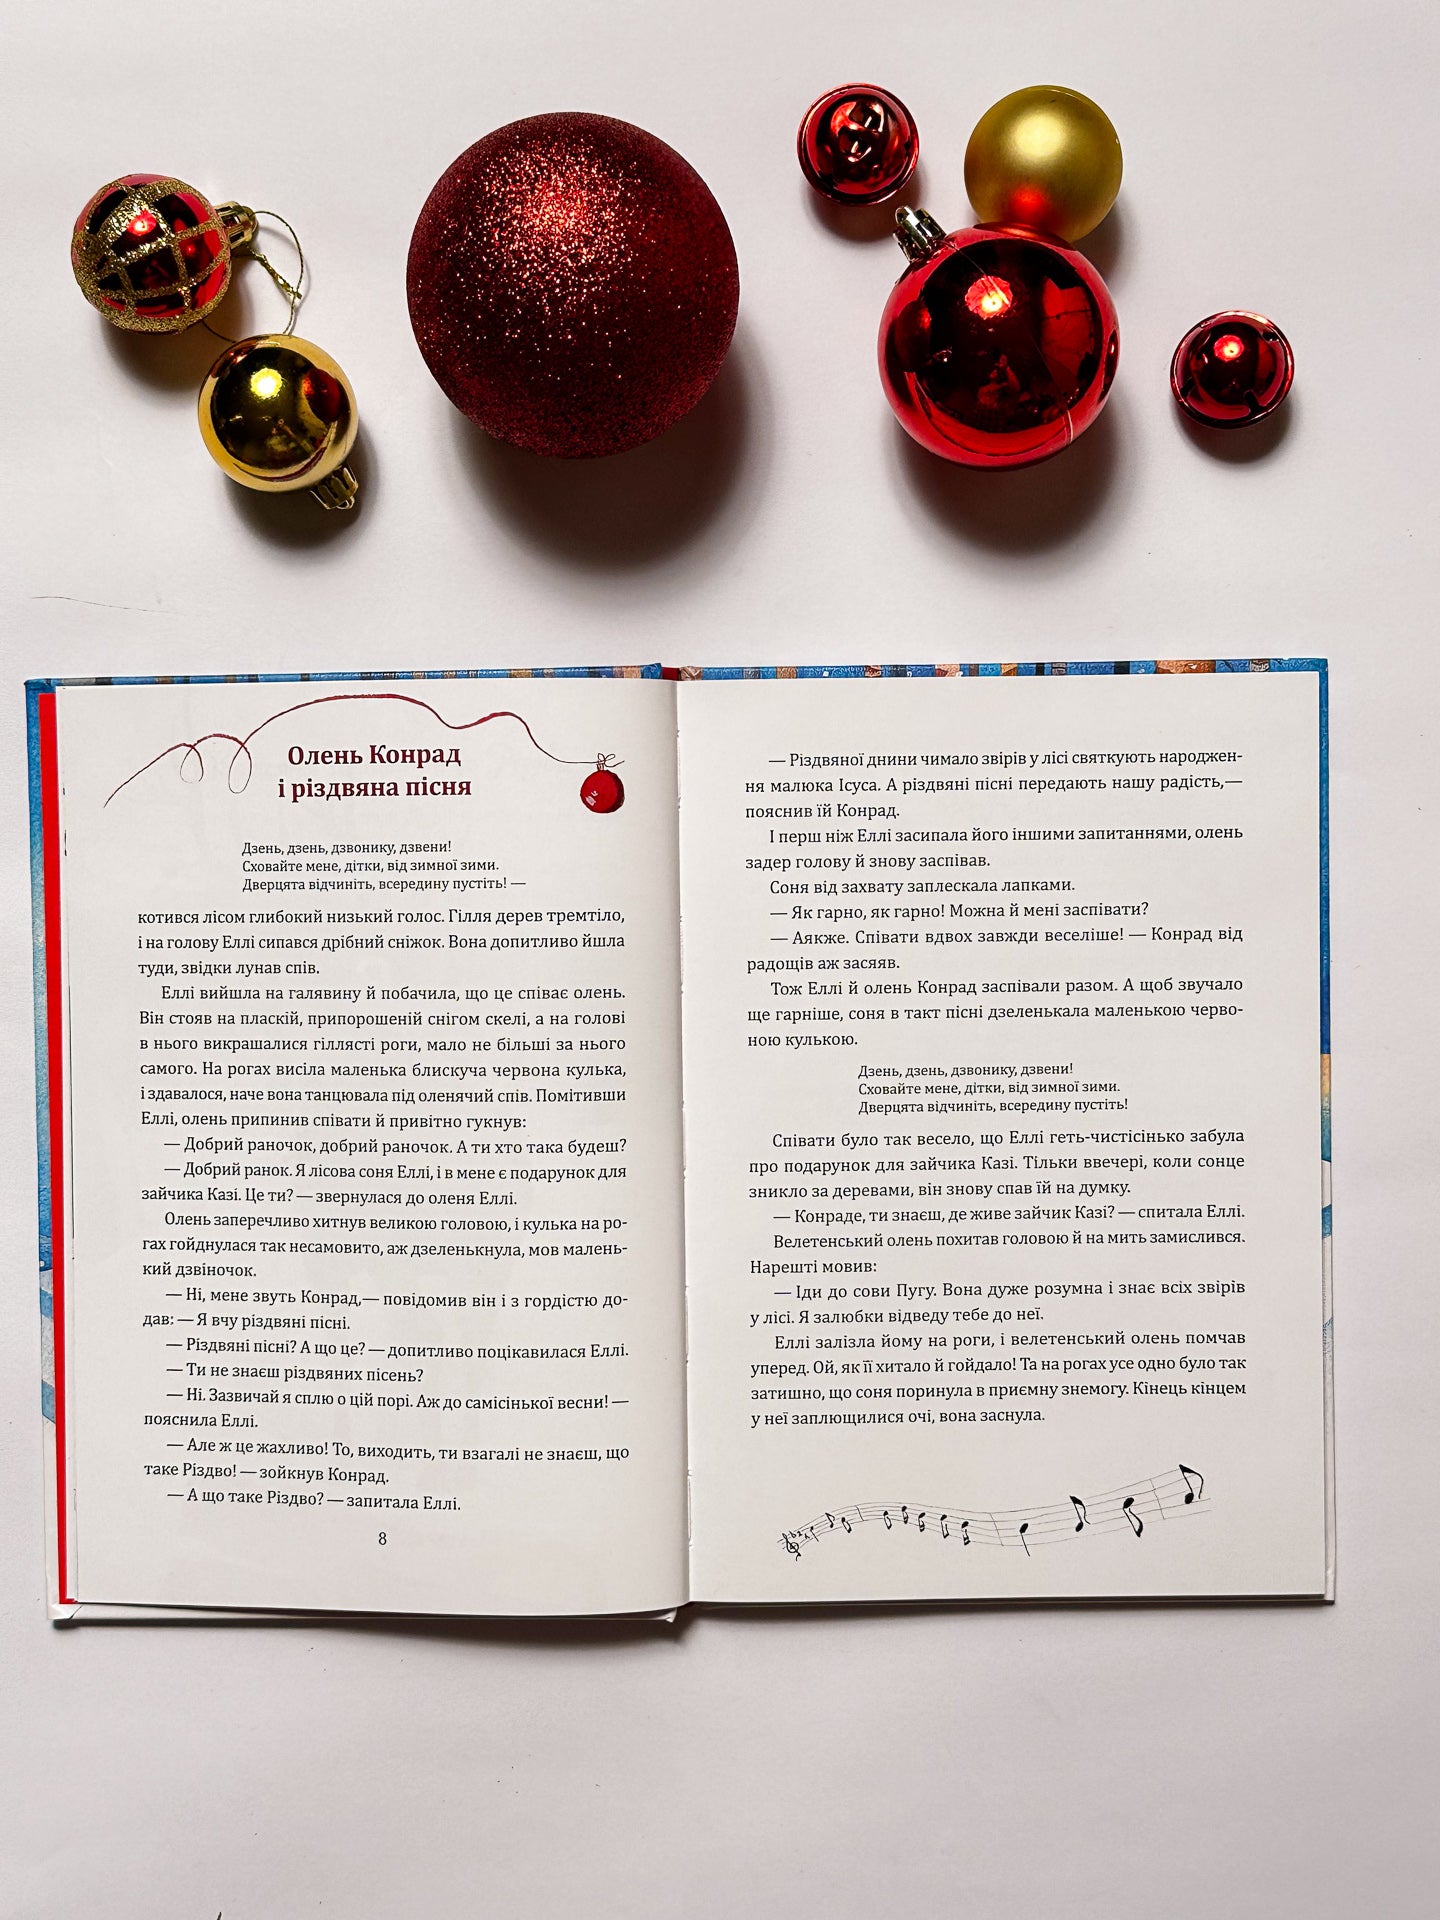 Олень Конрад
і різдвяна пісня
Дзень, дзень, дзвонику, дзвени!
Сховайте мене, дітки, від зимної зими.
Дверцята відчиніть, всередину пустіть! —
котився лісом глибокий низький голос. Гілля дерев тремтіло,
і на голову Еллі сипався дрібний сніжок. Вона допитливо йшла
туди, звідки лунав спів.
Еллі вийшла на галявину й побачила, що це співає олень.
Він стояв на пласкій, припорошеній снігом скелі, а на голові
в нього викрашалися гіллясті роги, мало не більші за нього
самого. На рогах висіла маленька блискуча червона кулька,
і здавалося, наче вона танцювала під оленячий спів. Помітивши
Еллі, олень припинив співати й привітно гукнув:
— Добрий раночок, добрий раночок. А ти хто така будеш?
— Добрий ранок. Я лісова соня Еллі, і в мене є подарунок для
зайчика Казі. Це ти? — звернулася до оленя Еллі.
Олень заперечливо хитнув великою головою, і кулька на ро-
гах гойднулася так несамовито, аж дзеленькнула, мов малень-
кий дзвіночок.
— Ні, мене звуть Конрад,— повідомив він і з гордістю до-
дав: — Я вчу різдвяні пісні.
— Різдвяні пісні? А що це? — допитливо поцікавилася Еллі.
— Ти не знаєш різдвяних пісень?
— Ні. Зазвичай я сплю о цій порі. Аж до самісінької весни! —
пояснила Еллі.
— Але ж це жахливо! То, виходить, ти взагалі не знаєш, що
таке Різдво! — зойкнув Конрад.
— А що таке Різдво? — запитала Еллі.
8
— Різдвяної днини чимало звірів у лісі святкують народжен-
ня малюка Ісуса. А різдвяні пісні передають нашу радість,—
пояснив їй Конрад.
І перш ніж Еллі засипала його іншими запитаннями, олень
задер голову й знову заспівав.
Соня від захвату заплескала лапками.
— Як гарно, як гарно! Можна й мені заспівати?
— Аякже. Співати вдвох завжди веселіше! — Конрад від
радощів аж засяяв.
Тож Еллі й олень Конрад заспівали разом. А щоб звучало
ще гарніше, соня в такт пісні дзеленькала маленькою черво-
ною кулькою.
Дзень, дзень, дзвонику, дзвени!
Сховайте мене, дітки, від зимної зими.
Дверцята відчиніть, всередину пустіть!
Співати було так весело, що Еллі геть-чистісінько забула
про подарунок для зайчика Казі. Тільки ввечері, коли сонце
зникло за деревами, він знову спав їй на думку.
— Конраде, ти знаєш, де живе зайчик Казі? — спитала Еллі.
Велетенський олень похитав головою й на мить замислився.
Нарешті мовив:
— Іди до сови Пугу. Вона дуже розумна і знає всіх звірів
у лісі. Я залюбки відведу тебе до неї.
Еллі залізла йому на роги, і велетенський олень помчав
уперед. Ой, як її хитало й гойдало! Та на рогах усе одно було так
затишно, що соня поринула в приємну знемогу. Кінець кінцем
у неї заплющилися очі, вона заснула.